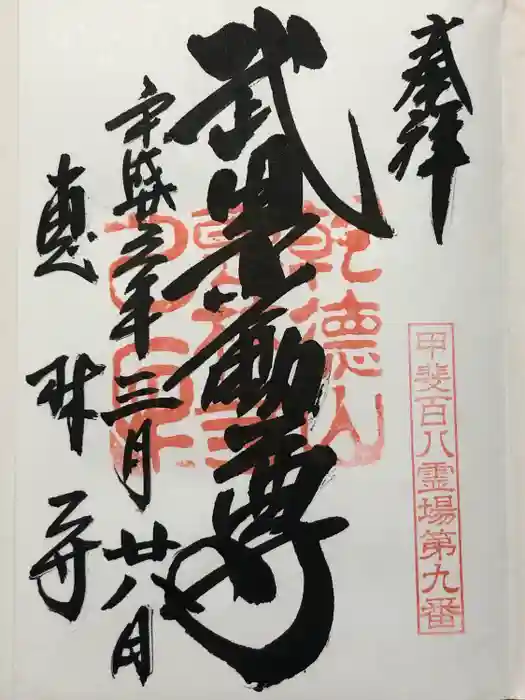 奉拝
甲斐百八霊場第九番
乾徳山
武田不動尊
平成年三月廿八日
恵林寺